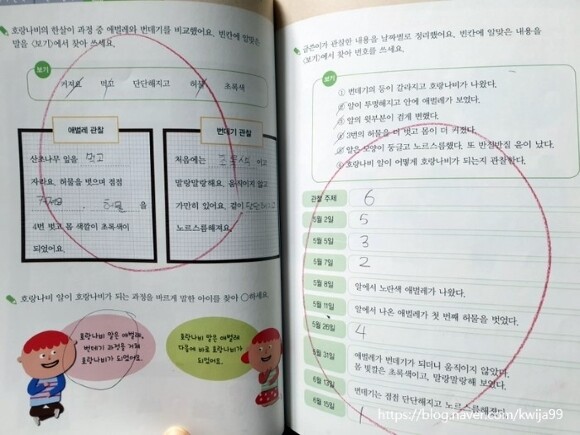 호랑나비의 한살이 과정 중 애벌레와 번데기를 비교했어요. 빈칸에 알맞은
말을 <보기>에서 찾아 쓰세요.
보기
커져요 먹고 단단해지고 허물 초록색
애벌레 관찰
산초나무 잎을 먹고
자라요. 허물을 벗으며 점점
커져요. 허물 을
4번 벗고 몸 색깔이 초록색이
되었어요.
번데기 관찰
처음에는 초록색 이고
말랑말랑해요. 움직이지 않고
가만히 있어요. 겉이 단단해지고
노르스름해져요.
호랑나비 알이 호랑나비가 되는 과정을 바르게 말한 아이를 찾아 ○하세요.
호랑나비 알은 애벌레,
번데기 과정을 거쳐
호랑나비가 되었어요.
호랑나비 알은 애벌레
다음에 바로 호랑나비가
되었어요.
글쓴이가 관찰한 내용을 날짜별로 정리했어요. 빈칸에 알맞은 내용을
<보기>에서 찾아 번호를 쓰세요.
보기
① 번데기의 등이 갈라지고 호랑나비가 나왔다.
② 알이 투명해지고 안에 애벌레가 보였다.
③ 알의 윗부분이 검게 변했다.
④ 3번의 허물을 더 벗고 몸이 더 커졌다.
⑤ 알은 모양이 둥글고 노르스름했다. 또 반질반질 윤이 났다.
⑥ 호랑나비 알이 어떻게 호랑나비가 되는지 관찰한다.
관찰 주제 6
5월 2일 5
5월 5일 3
5월 7일 2
5월 8일 알에서 노란색 애벌레가 나왔다.
5월 11일 알에서 나온 애벌레가 첫 번째 허물을 벗었다.
5월 26일 4
5월 31일 애벌레가 번데기가 되더니 움직이지 않았다.
몸 빛깔은 초록색이고, 말랑말랑해 보였다.
6월 13일 번데기는 점점 단단해지고 노르스름해졌다.
6월 15일 1
https://blog.naver.com/kwija99